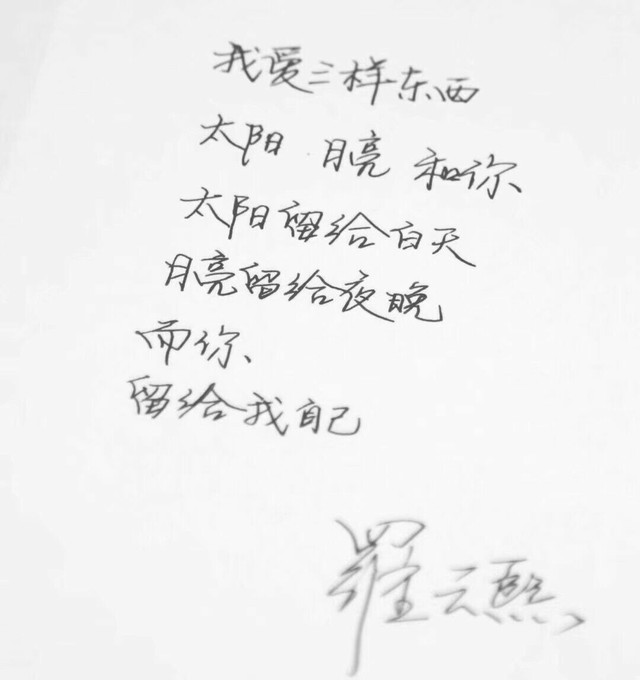 我爱三样东西
太阳 月亮 和你
太阳留给白天
月亮留给夜晚
而你、
留给我自己
罗云熙